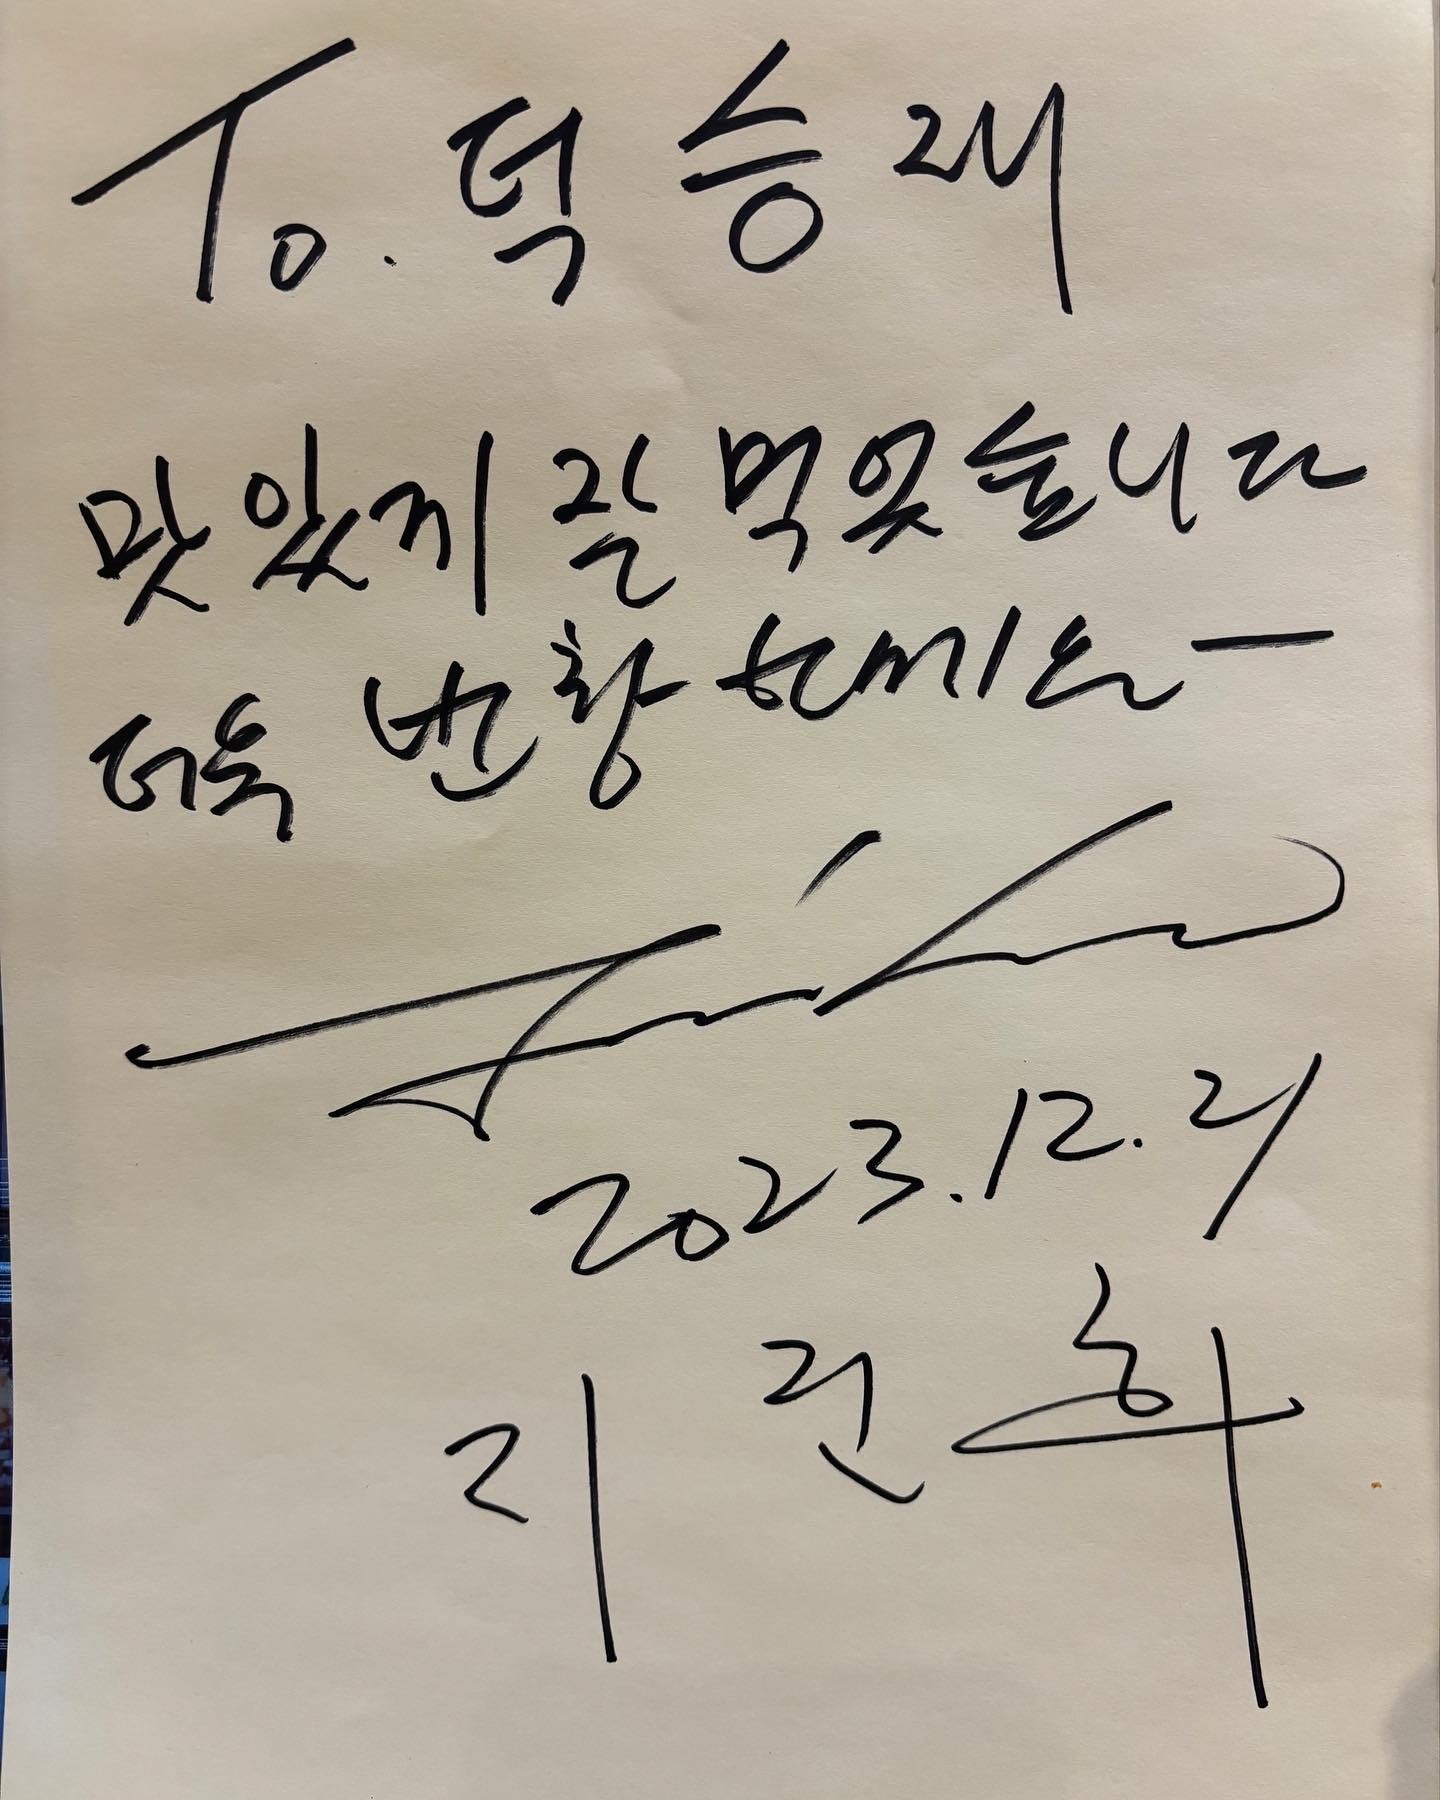 To. 덕승재
맛있게 잘 먹었습니다
더욱 번창하세요-
2023.12.21
지진희